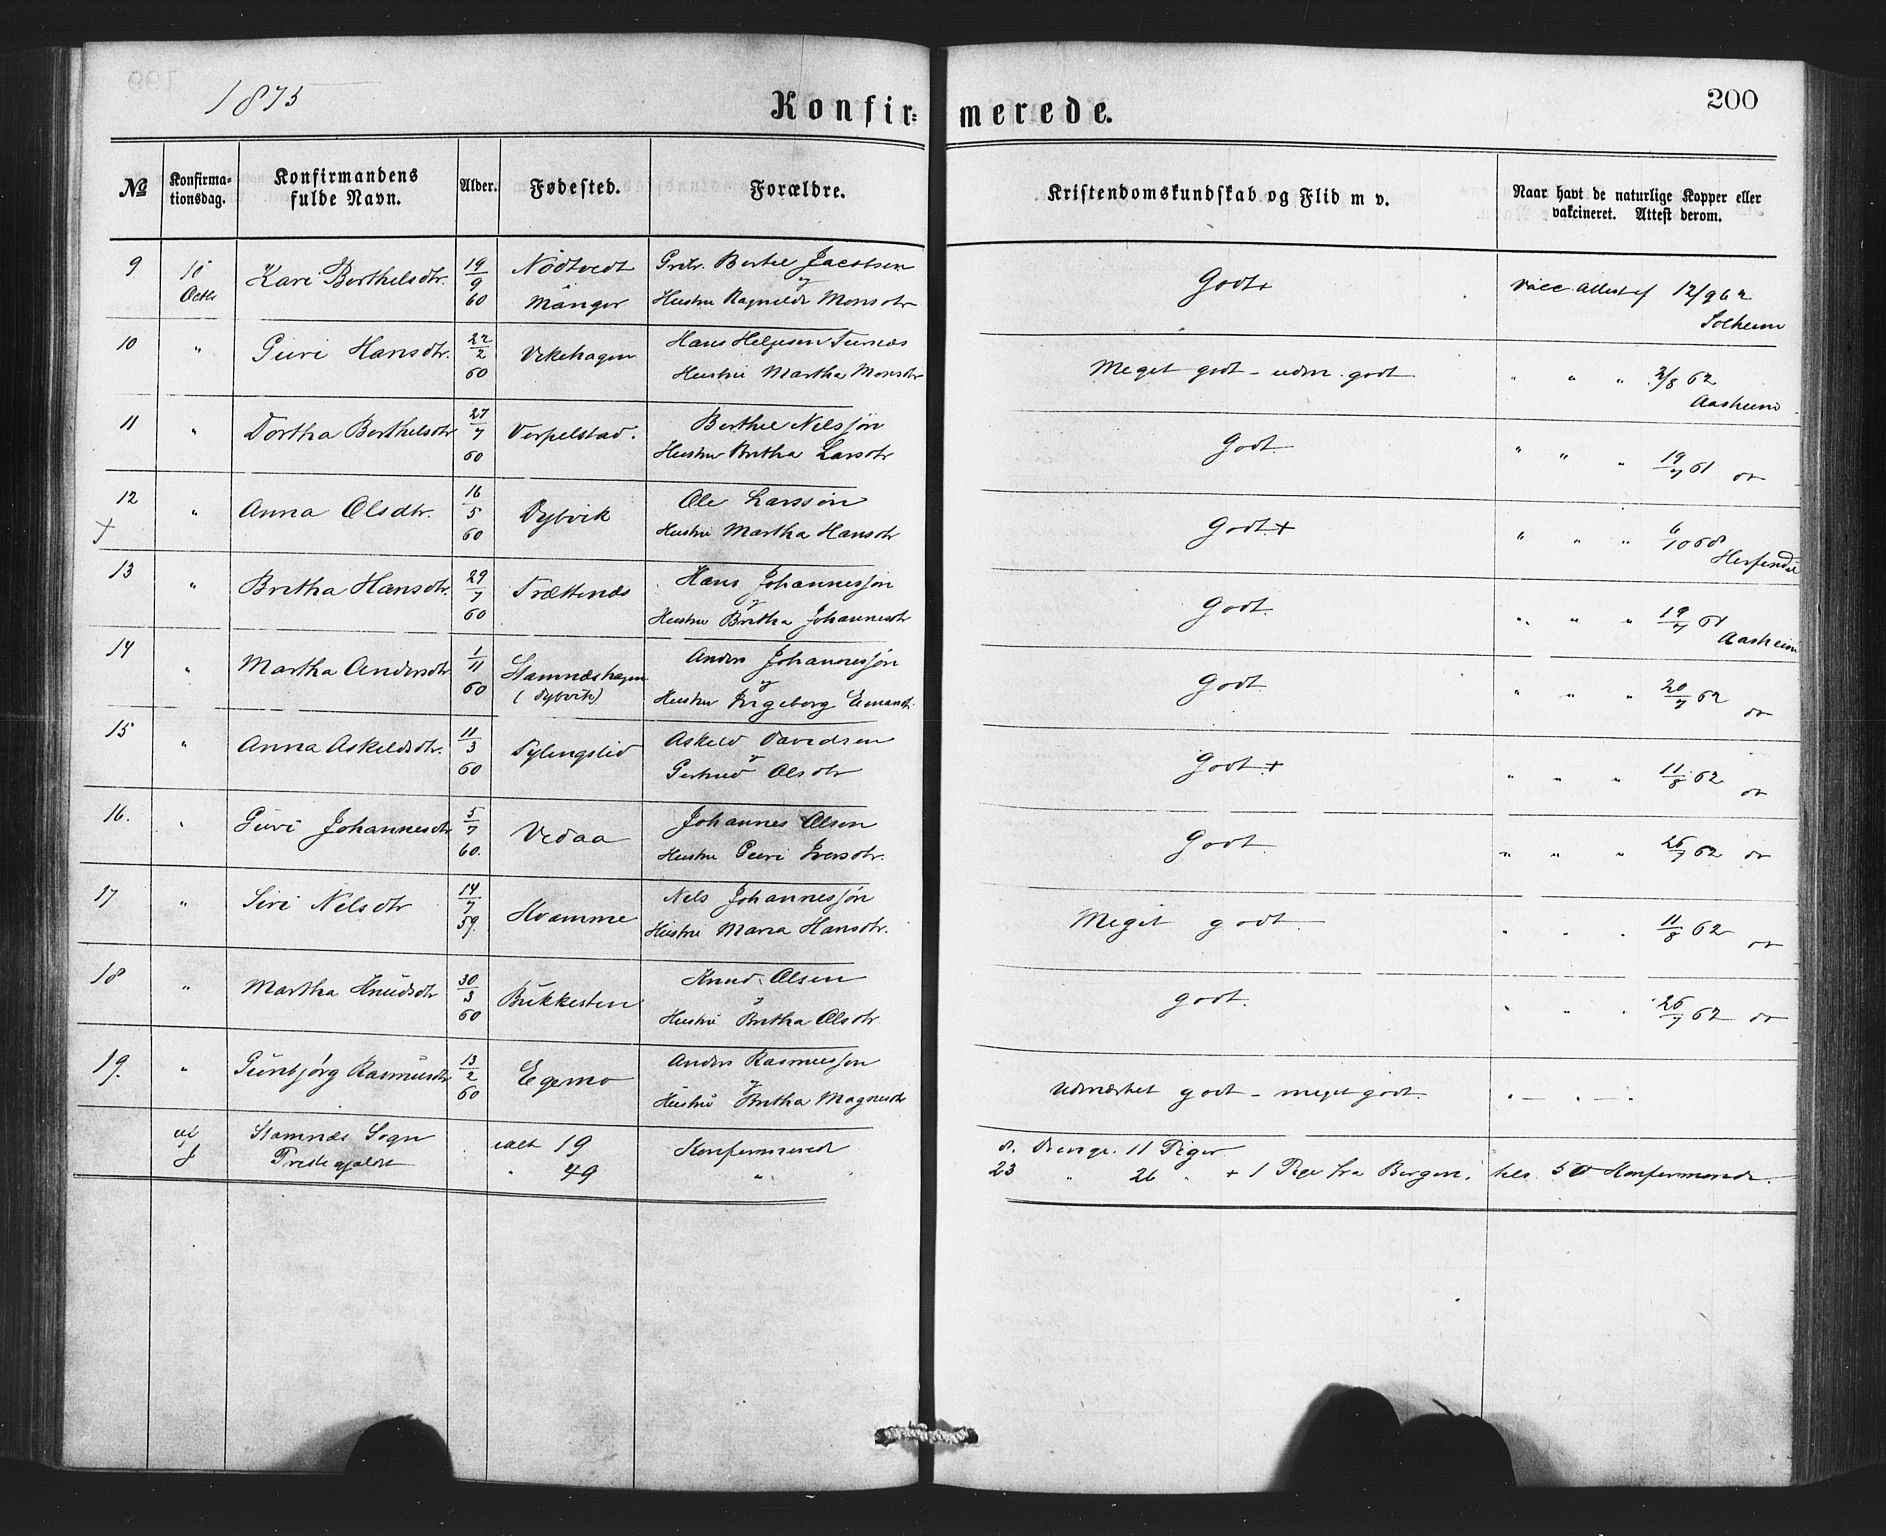 1875
Konfirmerede.
200
No
Konfirmationsdag.
Konfirmandens fulde Navn.
Alder.
Fødested.
Forældre.
Kristendomskundskab og Flid m v.
Naar havt de naturlige Kopper eller vakcineret. Attest derom.
9 10 Octbr Kari Berthelsdtr. 19/9 60 Nödtvedt Manger Bertel Jacobsen og Hustru Ragnilde Monsdtr Godt+ vacc. Attest af 12/9 62 Solheim
10 " Guri Hansdtr. 22/2 60 Vikehagen Hans Helgesen Hustru Martha Monsdtr Meget godt - udm. godt " " " 2/8 62 Aasheim
11 " Dortha Berthelsdtr 27/7 60 Verpelstad. Berthel Nilssøn Hustru Britha Larsdtr Godt " " " 19/7 61 do
12 + " Anna Olsdtr. 16/5 60 Dybvik Ole Larssøn Hustru Martha Hansdtr Godt.+ " " " 6/10 68 Herfindal
13 " Britha Hansdtr. 29/7 60 Trættenæs Hans Johannessøn og Hustru Britha Johannesdtr Godt. " " " 19/7 61 Aasheim
14 " Martha Andersdtr 1/11 60 Stamnæshagen (Dybvik) Anders Johannessøn og Hustru Ingeborg Godt " " " 20/7 62 do
15 " Anna Askeldsdtr. 11/3 60 Askeld Davidsen og Gertrud Olsdtr Godt.+ " " " 11/8 62 do
16. " Guri Johannesdtr 5/7 60. Vedaa Johannes Olsen Hustru Guri Iversdtr. Godt. " " " 26/7 62 do
17 " Siri Nilsdtr 14/7 59. Hvamme Nels Johannessøn Hustru Maria Hansdtr. Meget godt. " " " 11/8 62 do
18 " Martha Knudsdtr 30/3 60 Bukkesten Knud Olsen og Hustru Britha Olsdtr. godt. " " " 26/7 62 do
19. " Gunbjørg Rasmusdtr 13/2 60 Egemo Anders Rasmussøn og Hustru Britha Magnesdtr Udmærket godt - meget godt. " — " — "
af Stamnæs Sogn ialt 19 Konfirmered 8. Drenge. 11 Piger
" 49 " 23 " 26 " + 1 Pige fra Bergen. tils. 50 Konfirmerede.